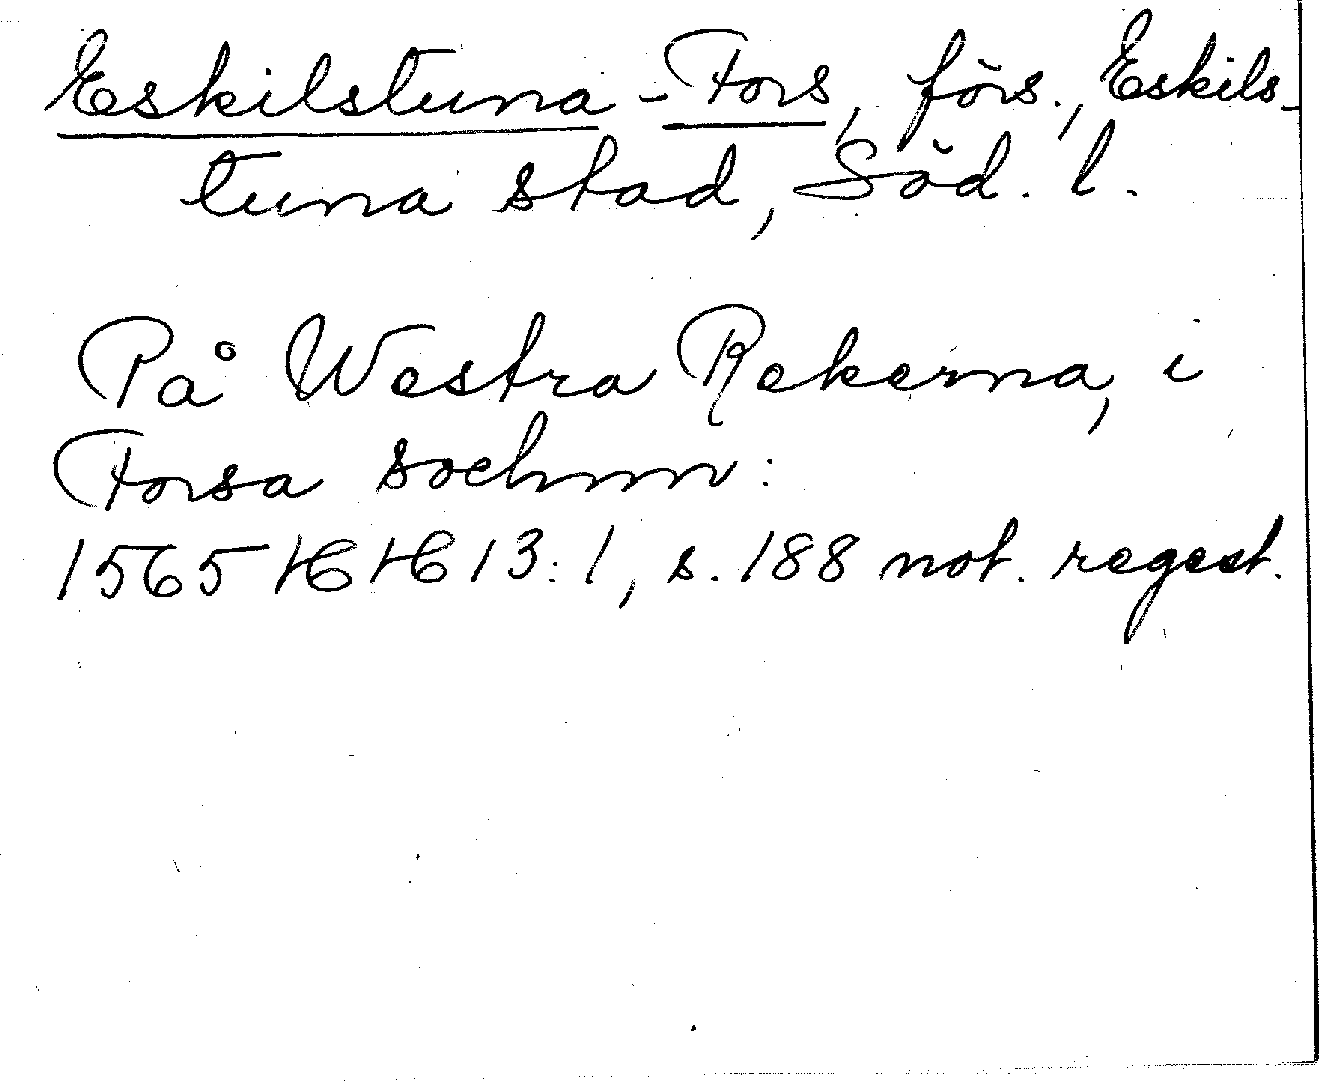 Eskilstuna-Fors, förs., Eskils-
tuna stad, Söd. l.
På Westra Rekerna, i
Forsa sochnn:
1565 HH 13:1, s. 188 not. regest.